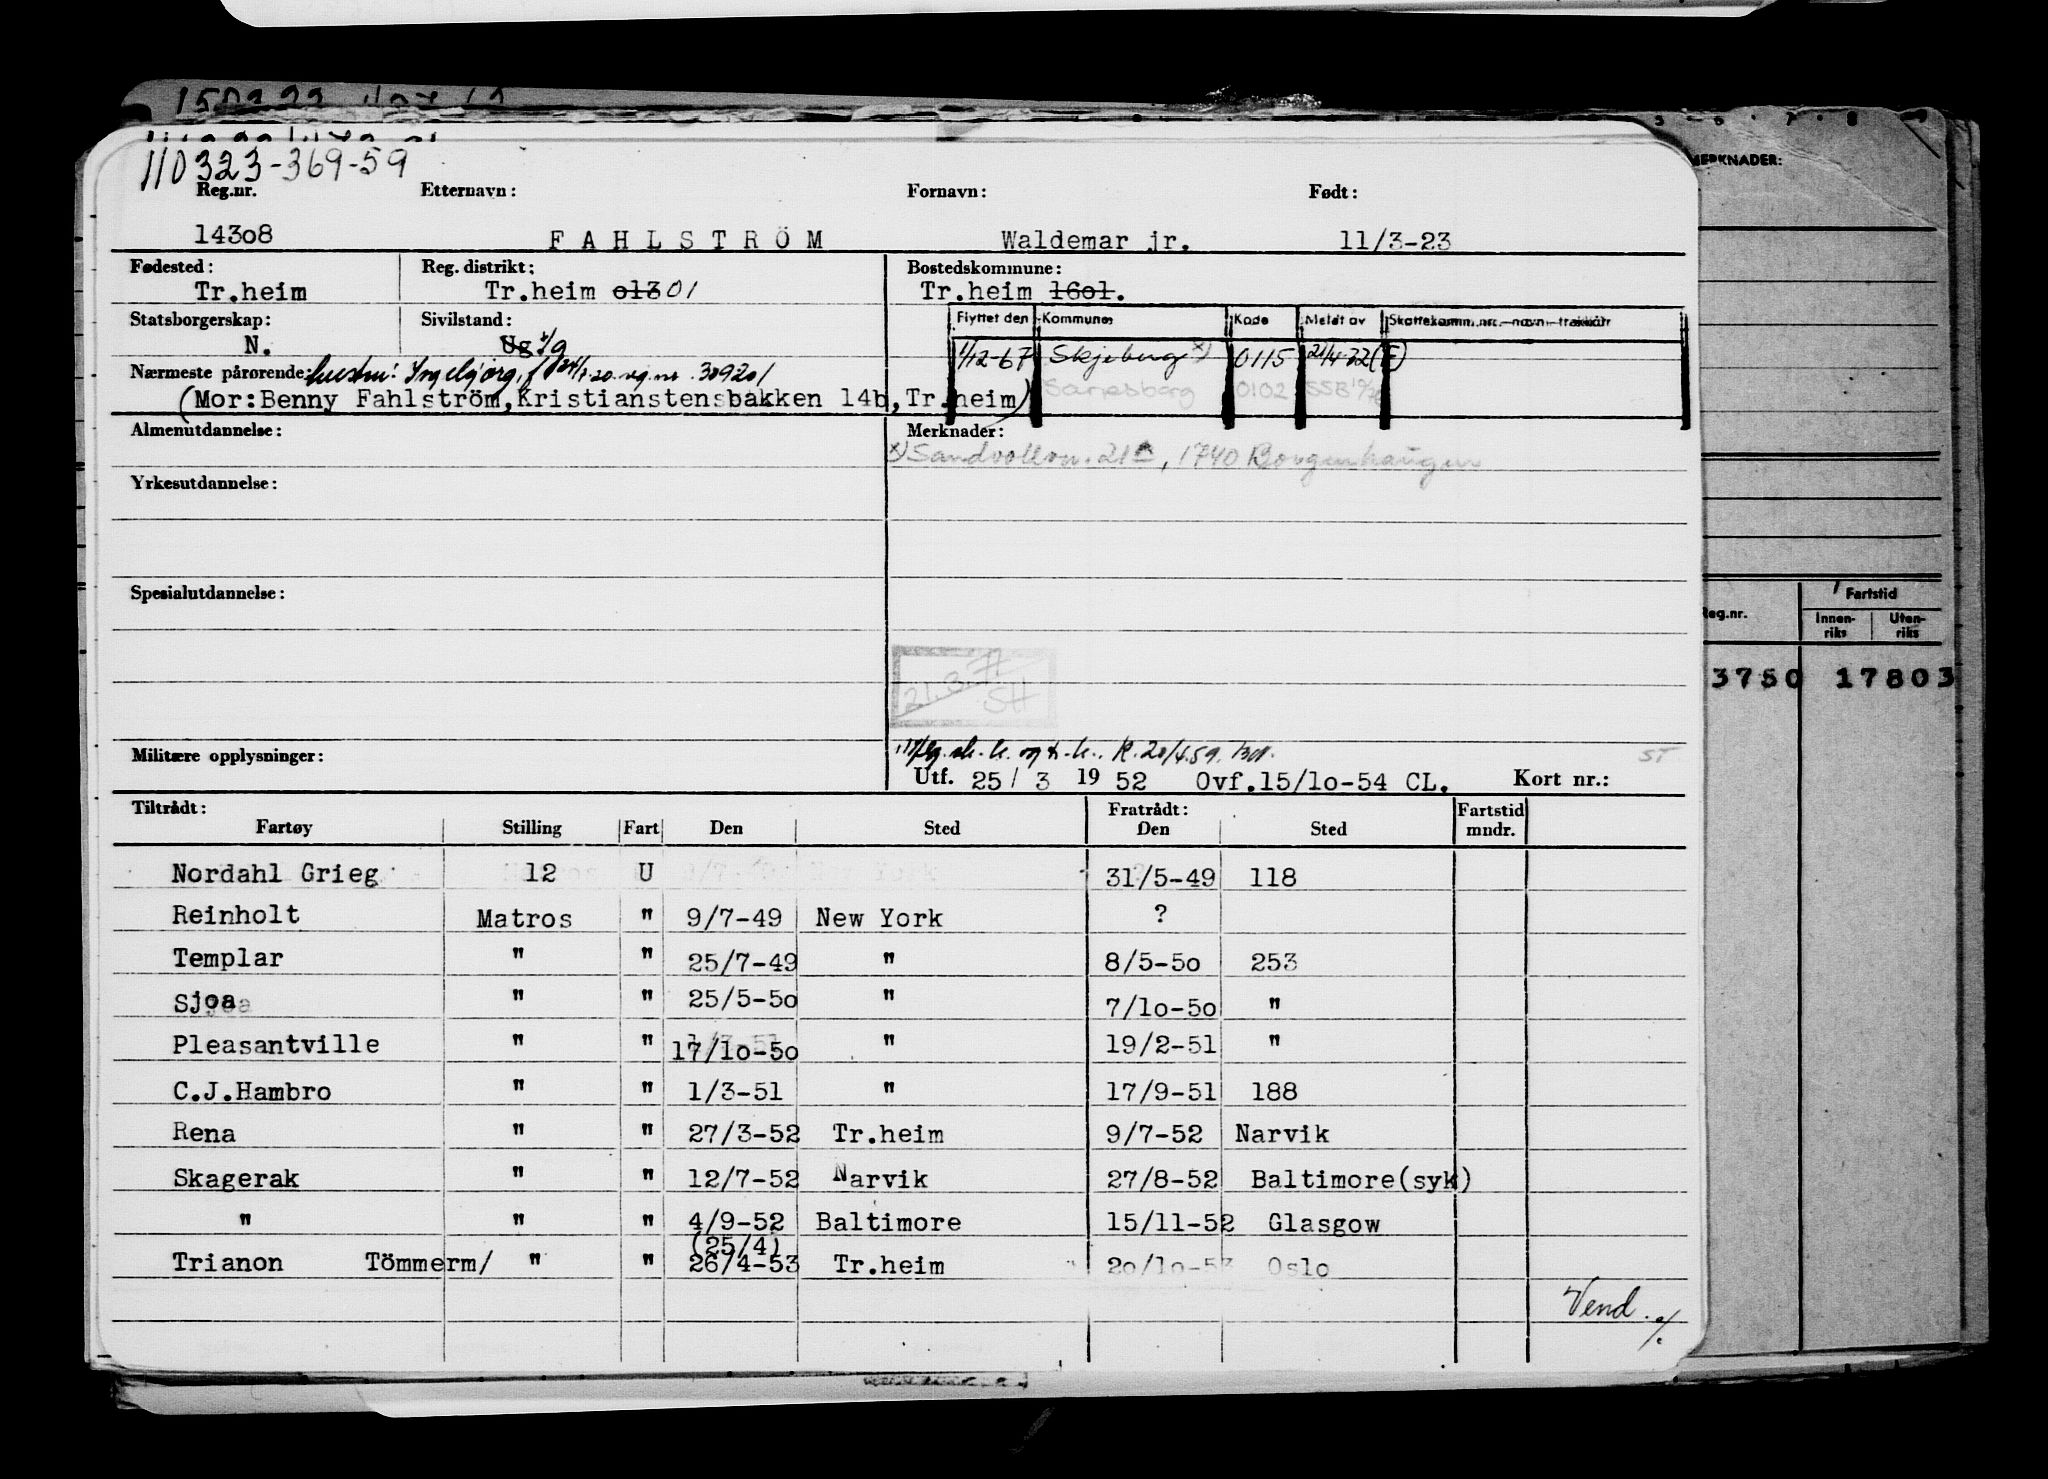 110323-369-59
Reg.nr. Etternavn: Fornavn: Født:
14308 FAHLSTRÖM Waldemar jr. 11/3-23
Fødested: Reg. distrikt: Bostedskommune:
Tr.heim Tr.heim 013 01 Tr.heim 1601.
Statsborgerskap: Sivilstand: Flyttet den Kommune Kode Meldt av Skattekomm.nr.-navn-trekkår
N. Ug g 1/12-67 Skjeberg x) 0115 21/4-72 (F)
Nærmeste pårørende: hustru: Ingebjørg, f. rg. nr. 309201
Sarpsborg 0102 SSB
(Mor:Benny Fahlström,Kristianstensbakken 14b,Tr.heim)
Almenutdannelse: Merknader:
x) Sandvollvn. 21A, 1740 Borgenhaugen
Yrkesutdannelse:
Spesialutdannelse:
21.3.77
SH
Militære opplysninger:
ST
Utf. 25/ 3 19 52 Ovf.15/10-54 CL. Kort nr.:
Tiltrådt: Fratrådt: Fartstid
Fartøy Stilling Fart Den Sted Den Sted mndr.
Nordahl Grieg 12 U 31/5-49 118
Reinholt Matros " 9/7-49 New York ?
Templar " " 25/7-49 " 8/5-50 253
Sjoa " " 25/5-50 " 7/10-50 "
Pleasantville " " 17/10-50 " 19/2-51 "
C.J.Hambro " " 1/3-51 " 17/9-51 188
Rena " " 27/3-52 Tr.heim 9/7-52 Narvik
Skagerak " " 12/7-52 Narvik 27/8-52 Baltimore(syk)
" " " 4/9-52 Baltimore 15/11-52 Glasgow
(25/4)
Trianon Tömmerm/ " " 26/4-53 Tr.heim 20/10-53 Oslo
Vend ./.
MERKNADER:
Reg.nr. Fartstid
Innen-riks Uten-riks
3750 17803